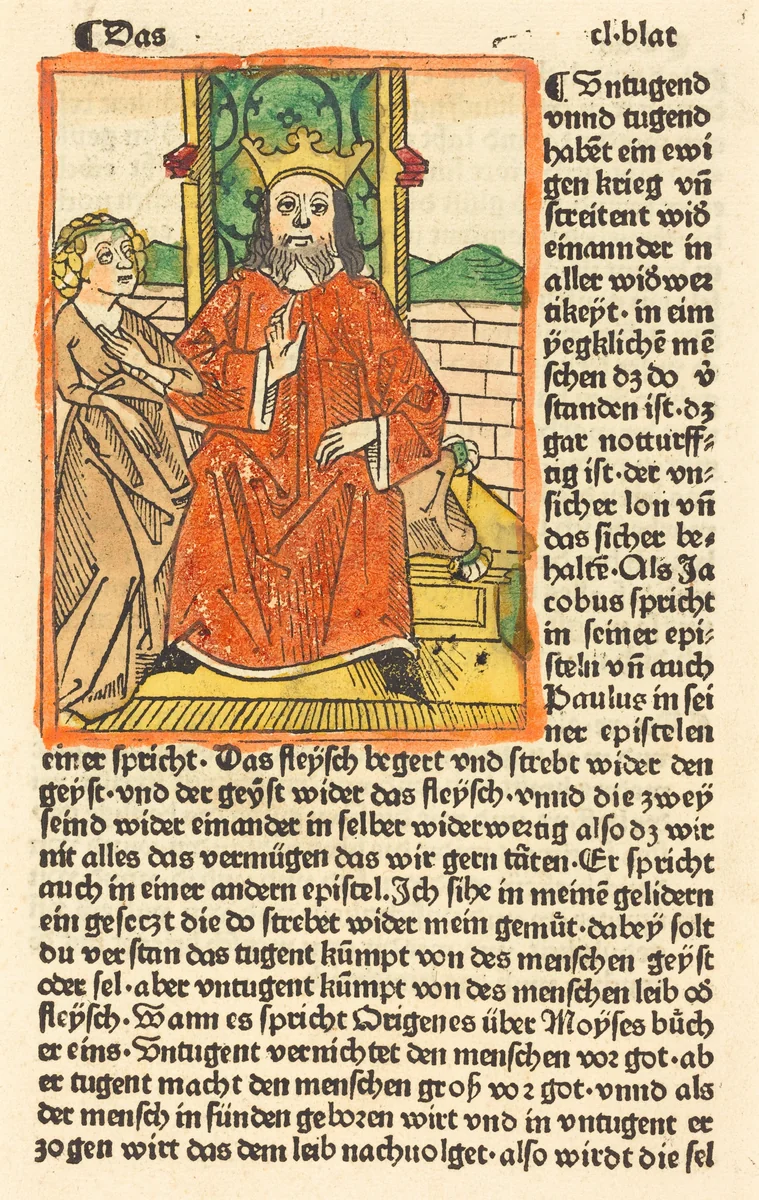 ¶ Das cl·blat
¶ Untugend
vnnd tugend
habēt ein ewi
gen krieg vn̄
streitent wid̕
einannder in
aller wid̕wer
tikeÿt· in eim
ÿegklichē mē
schen dz do v̕
standen ist·dz
gar notturff⸗
tig ist·der vn⸗
sicher lon vn̄
das sicher be⸗
haltē·Als Ja
cobus spricht
in seiner epi⸗
steln vn̄ auch
Paulus in sei
ner epistelen
einer spricht· Das fleÿsch begert vnd strebt wider den
geÿst·vnd der geÿst wider das fleÿsch·vnnd die zweÿ
seind wider einander in selber widerwertig also dz wir
nit alles das vermügen das wir gern tåten·Er spricht
auch in einer andern epistel.Ich sihe in meinē gelidern
ein geseczt die do strebet wider mein gemůt·dabeÿ solt
du verstan das tugent kumpt von des menschen geÿst
oder sel·aber vntugent kumpt von des menschen leib od̕
fleÿsch·Wann es spricht Origenes über Moÿses bůch
er eins·Untugent vernichtet den menschen vor got·ab
er tugent macht den menschen groß vor got·vnnd als
der mensch in sünden geboren wirt vnd in vntugent er
zogen wirt das dem leib nachuolget·also wirdt die sel